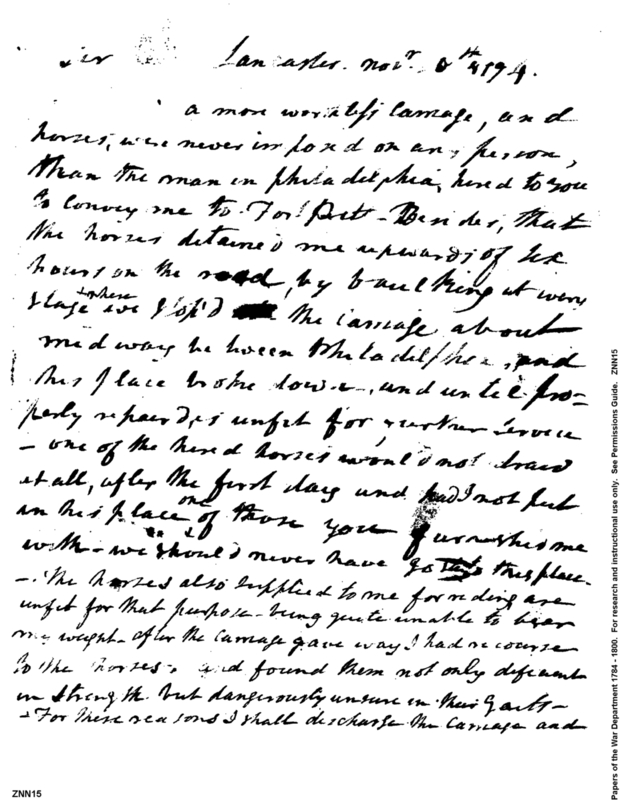 Sir Lancaster. novr. 8th 1794.
a more worthless Carriage, and
horses, were never imposed on any person,
than the man in philadelphia, hired to you
to Convey me to. Fort Pitt - Besides, that
the horses detained me upwards of six
hours on the road, by baulking at every
Stage where we stop'd the Carriage about
midway between Philadelphia, and
this place broke down, and until pro-
perly repair'd, is unfit for further Service
- one of the hired horses would not draw
at all, after the first day and had I not put
in his place one of those you furnished me
with - we should never have got to this place.
-. The horses also supplied to me for riding are
unfit for that purpose - being quite unable to bear
my weight - after the Carriage gave way I had recourse
to the horses, and found them not only deficient
in strength. but dangerously unsure in their Gaits -
- For these reasons I shall discharge the Carriage and
ZNN15
Papers of the War Department 1784 - 1800. For research and instructional use only. See Permissions Guide. ZNN15